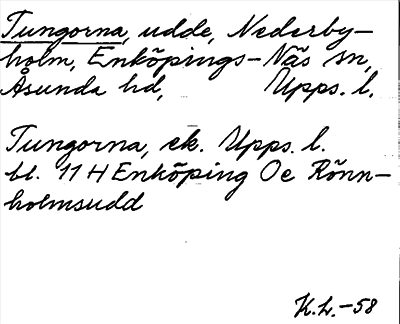 Tungorna, udde, Nederby-
holm, Enköpings-Näs sn,
Åsunda hd, Upps. l.
Tungorna, ek. Upps. l.
bl. 11 H Enköping Oe Rönn-
holmsudd
K.L.-58